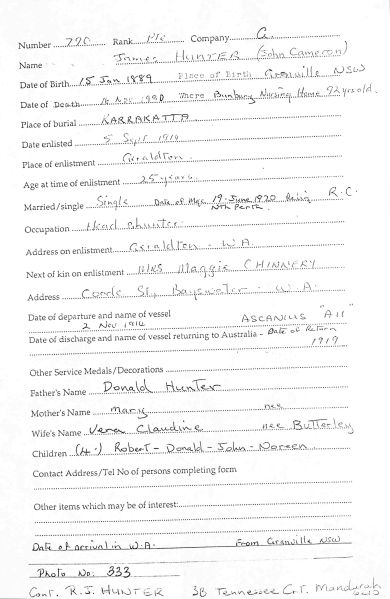 Number 790 Rank Pte Company G
Name James HUNTER (John Cameron)
Date of Birth 15 Jan 1889 Place of Birth Granville NSW
Date of Death Nov Where Bunbury Nursing Home 92 yrs old.
Place of burial KARRAKATTA
Date enlisted 5 Sept 1914
Place of enlistment Geraldton
Age at time of enlistment 25 years
Married/single Single Date of Mge. 19 June 1920 R.C.
Nth Perth.
Occupation Head shunter
Address on enlistment Geraldton - W.A.
Next of kin on enlistment MRS Maggie CHINNERY
Address Coode St, Bayswater - W.A.
Date of departure and name of vessel ASCANIUS "A11"
2 Nov 1914
Date of discharge and name of vessel returning to Australia - Date of Return
1919
Other Service Medals/Decorations
Father's Name Donald Hunter
Mother's Name Mary nee
Wife's Name Vera Claudine nee Butterley
Children (4.) Robert - Donald - John - Noreen
Contact Address/Tel No of persons completing form
Other items which may be of interest:
Date of arrival in W.A. From Granville NSW
Photo No: 333
Cont. R.J. HUNTER 3B Tennessee Crt. Mandurah